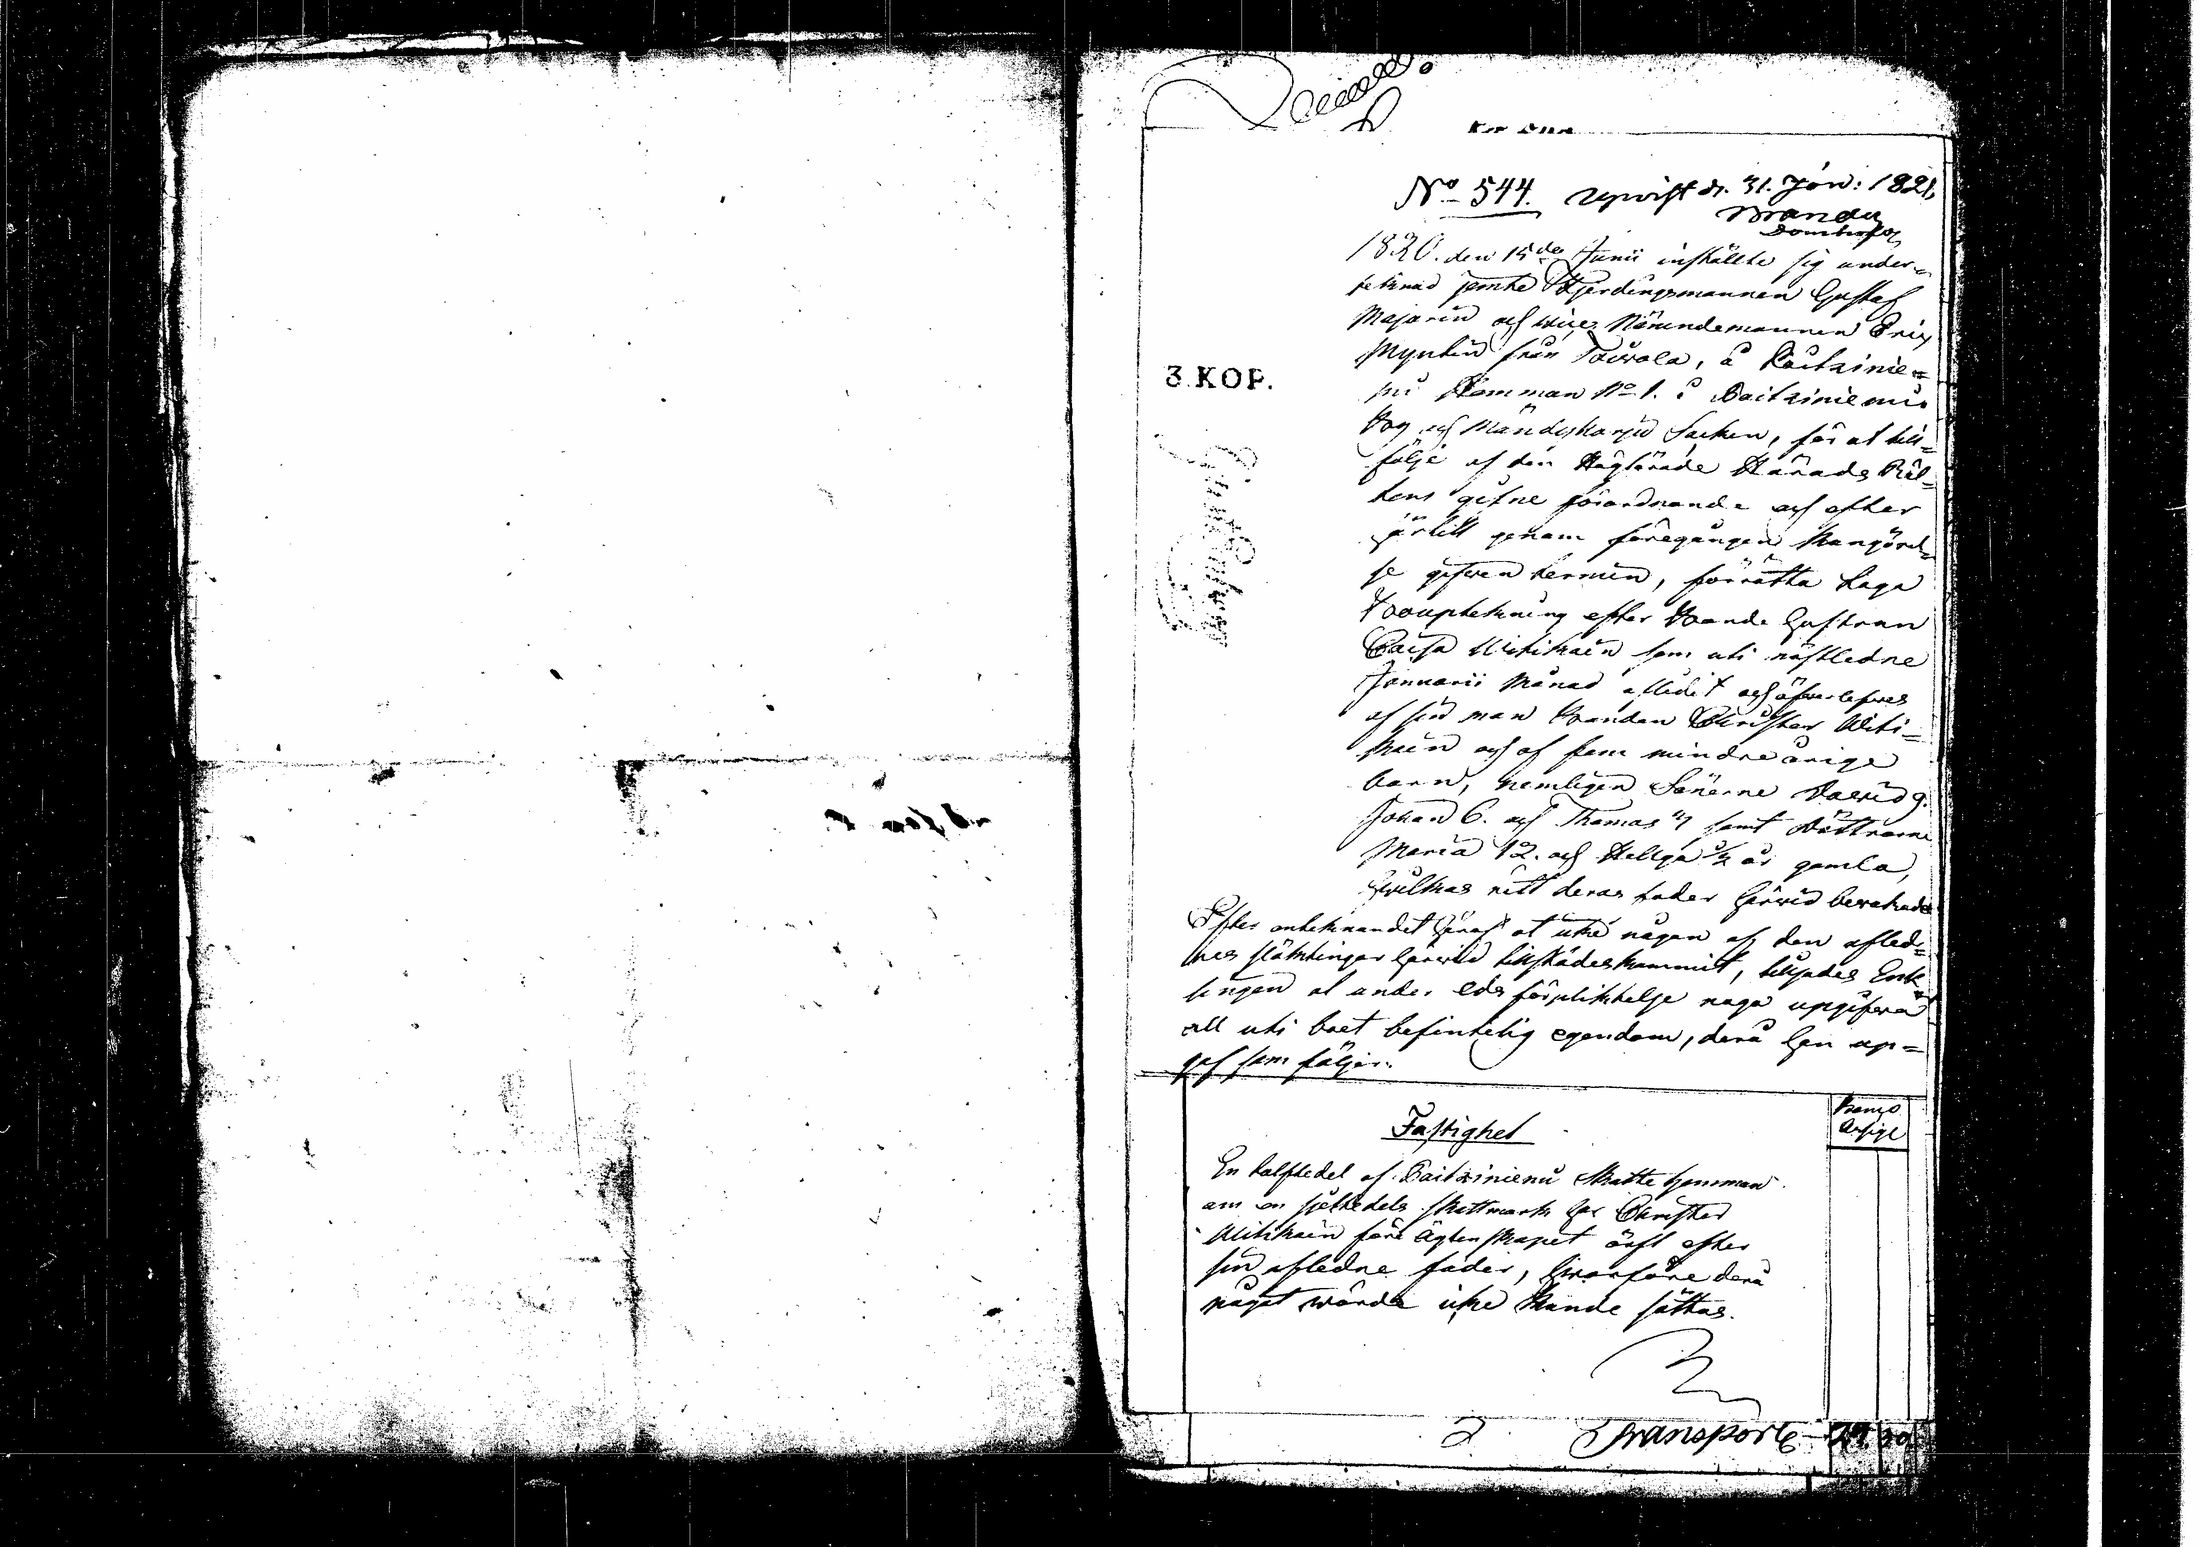 No 544. upvist d. 31. Jan: 1821,
1820. den 15de Junii inställte sig under=
teknad jemte Fjerdingsmannen Gustaf
Majarin och vice Nämndemannen Eric
Myntin från Toivola, å Paitzinie=
mi Hemman No 1. i Paitziniemi
by och Mändyharju Socken, för at till=
följe af den Höglärade Härads Rät=
tens gifne förordnande och efter
härtill genom föregången kungörel=
se gifven termin, förrätta Laga
Bouptekning efter Bonde hustrun
Caisa Uitikain som uti nästledne
Januarii Månad aflidit och öfverlefves
af sin man Bonden Christer Uiti=
kain och af fem mindreårige
barn, nemligen Sönerne David 9.
Johan 6. och Thomas samt Döttrarne
Maria 12. och Hellga 1/2 år gamla,
hvilkas rätt deras fader härvid bevakade
Efter anteknandet häraf at icke någon af den afled=
nes slägtingar härvid tillstädeskommit, tillsades Enk=
lingen at under Eds förpliktelse noga upgifva
all uti boet befintelig egendom, derå han up=
gaf som följer:
Banco
Assign
Fastighet
En halftedel af Paitziniemi Skatte hemman
om en sjettedels skattmark har Christer
Uitikain före Ägtenskapet ärft efter
sin afledne fader, hvarföre derå
något värde icke kunde sättas.
Transport
3 KOP.